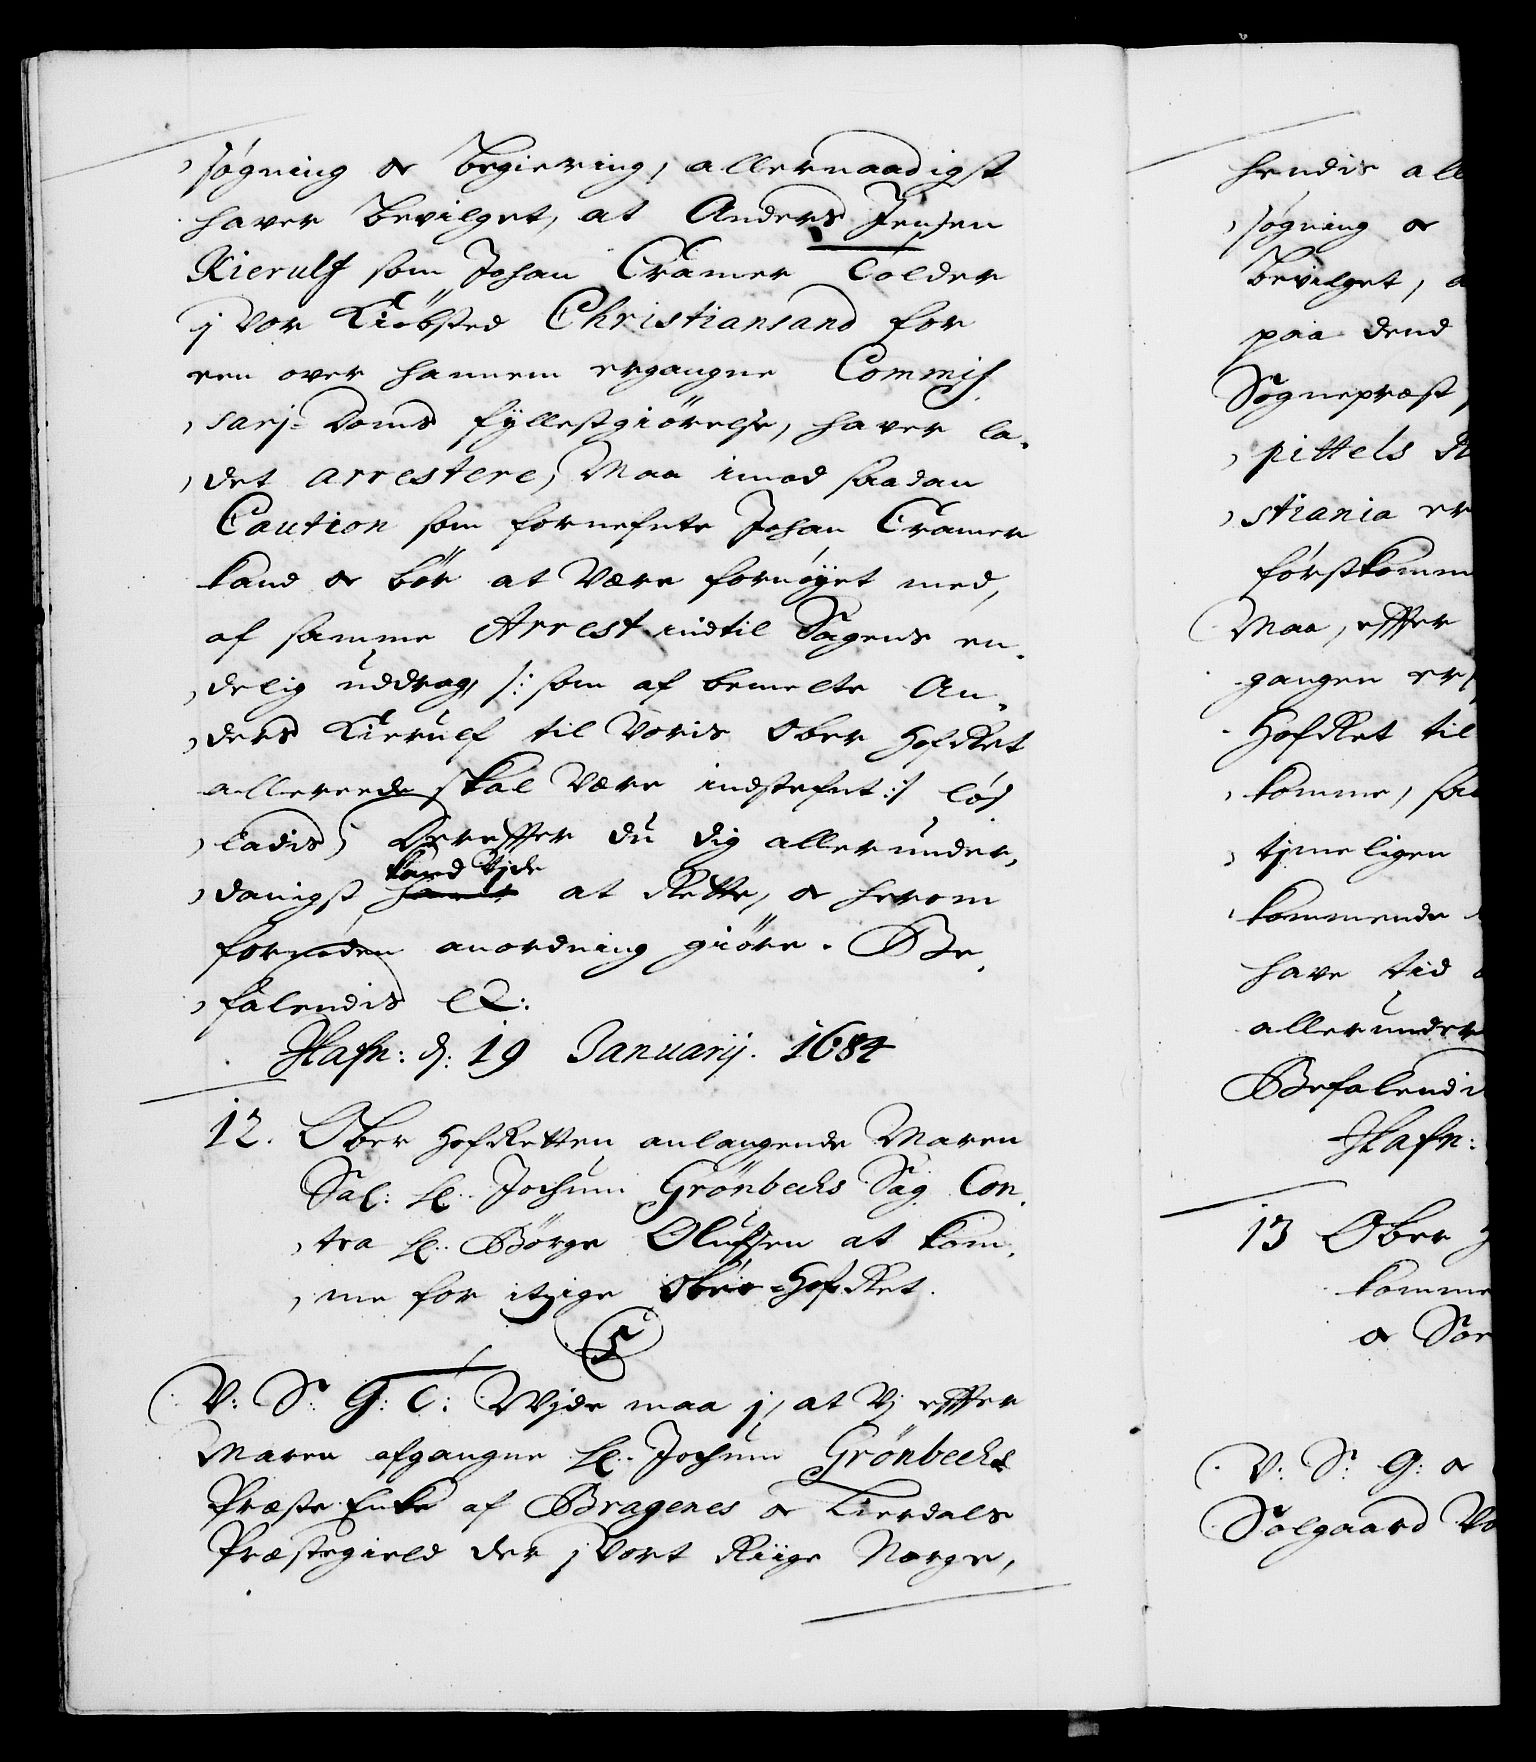 søgning oc begiering, allernaadigst
haver bevilget, at Anders Jensen
Kierulf som Johan Cramer Tolder
j vor Kiøbsted Christiansand for
een over hannem ergangne Commis¸
sarj-Doms fyllestgiørelse, haver la¸
det arrestere, Maa imod saadan
Caution som fornefnte Johan Cramer
kand oc bör at være fornøyet med,
af samme Arrest indtil Sagens en¸
delig uddrag, /: som af bemelte An¸
ders Kierulf til Voris Ober HofRet
allereede skal være indstefnt :/ løs
ladis, Derefter du dig allerunder¸
danigst kand vide at Rette, oc herom
fornøden anordning giöre. Be¸
falendis etc:
Hafn: d: 19 Januarij. 1684
12. Ober HofRetten anlangende Maren
Sal: Hr. Jochum Grönbechs Sag Con¸
tra Hr. Börge Olufsen at kom¸
me for itzige Ober-HofRet.
5
V: S: G: T: Wide maa j, at Vj efter
Maren afgangne Hr. Jochum Grönbechs
Præste Enke af Bragenes oc Lierdals
Præstegield der j vort Riige Norge,
hendis all
søgning oc
bevilget, a
paa dend
Sognepræst,
pittels
stiania er
förstkomm
Maa, efter
gangen er
HofRet til
komme, saa
tjmeligen
kommende
have tid
allerunder
Befalendi
Hafn:
13 Ober H
komme
oc Sor
V: S: G: oc
Solgaard Vo